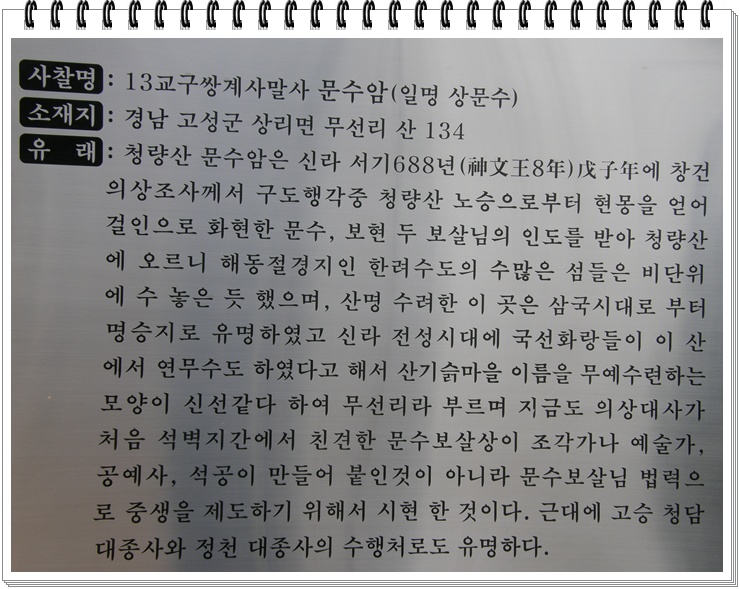 사찰명 : 13교구쌍계사말사 문수암(일명 상문수)
소재지 : 경남 고성군 상리면 무선리 산 134
유 래 : 청량산 문수암은 신라 서기688년(神文王8年)戊子年에 창건
의상조사께서 구도행각중 청량산 노승으로부터 현몽을 얻어
걸인으로 화현한 문수, 보현 두 보살님의 인도를 받아 청량산
에 오르니 해동절경지인 한려수도의 수많은 섬들은 비단위
에 수 놓은 듯 했으며, 산명 수려한 이 곳은 삼국시대로 부터
명승지로 유명하였고 신라 전성시대에 국선화랑들이 이 산
에서 연무수도 하였다고 해서 산기슭마을 이름을 무예수련하는
모양이 신선같다 하여 무선리라 부르며 지금도 의상대사가
처음 석벽지간에서 친견한 문수보살상이 조각가나 예술가,
공예사, 석공이 만들어 붙인것이 아니라 문수보살님 법력으
로 중생을 제도하기 위해서 시현 한 것이다. 근대에 고승 청담
대종사와 정천 대종사의 수행처로도 유명하다.